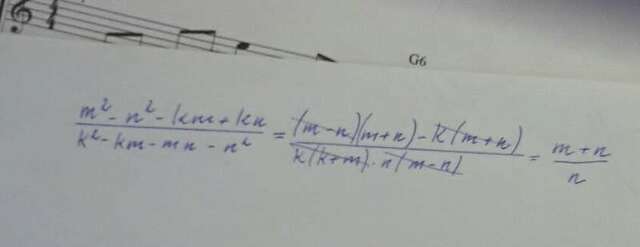 G6
m² - n² - km + kn / k² - km - mn - n² = (m-n)(m+n) - k(m+n) / k(k+m) · n(m-n) = m+n / n